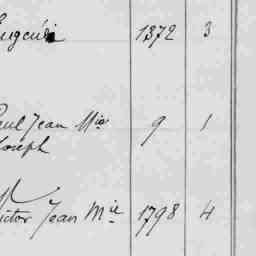 Eugénie 1372 3
Paul Jean Mie 9 1
Joseph
Victor Jean Mie 1798 4